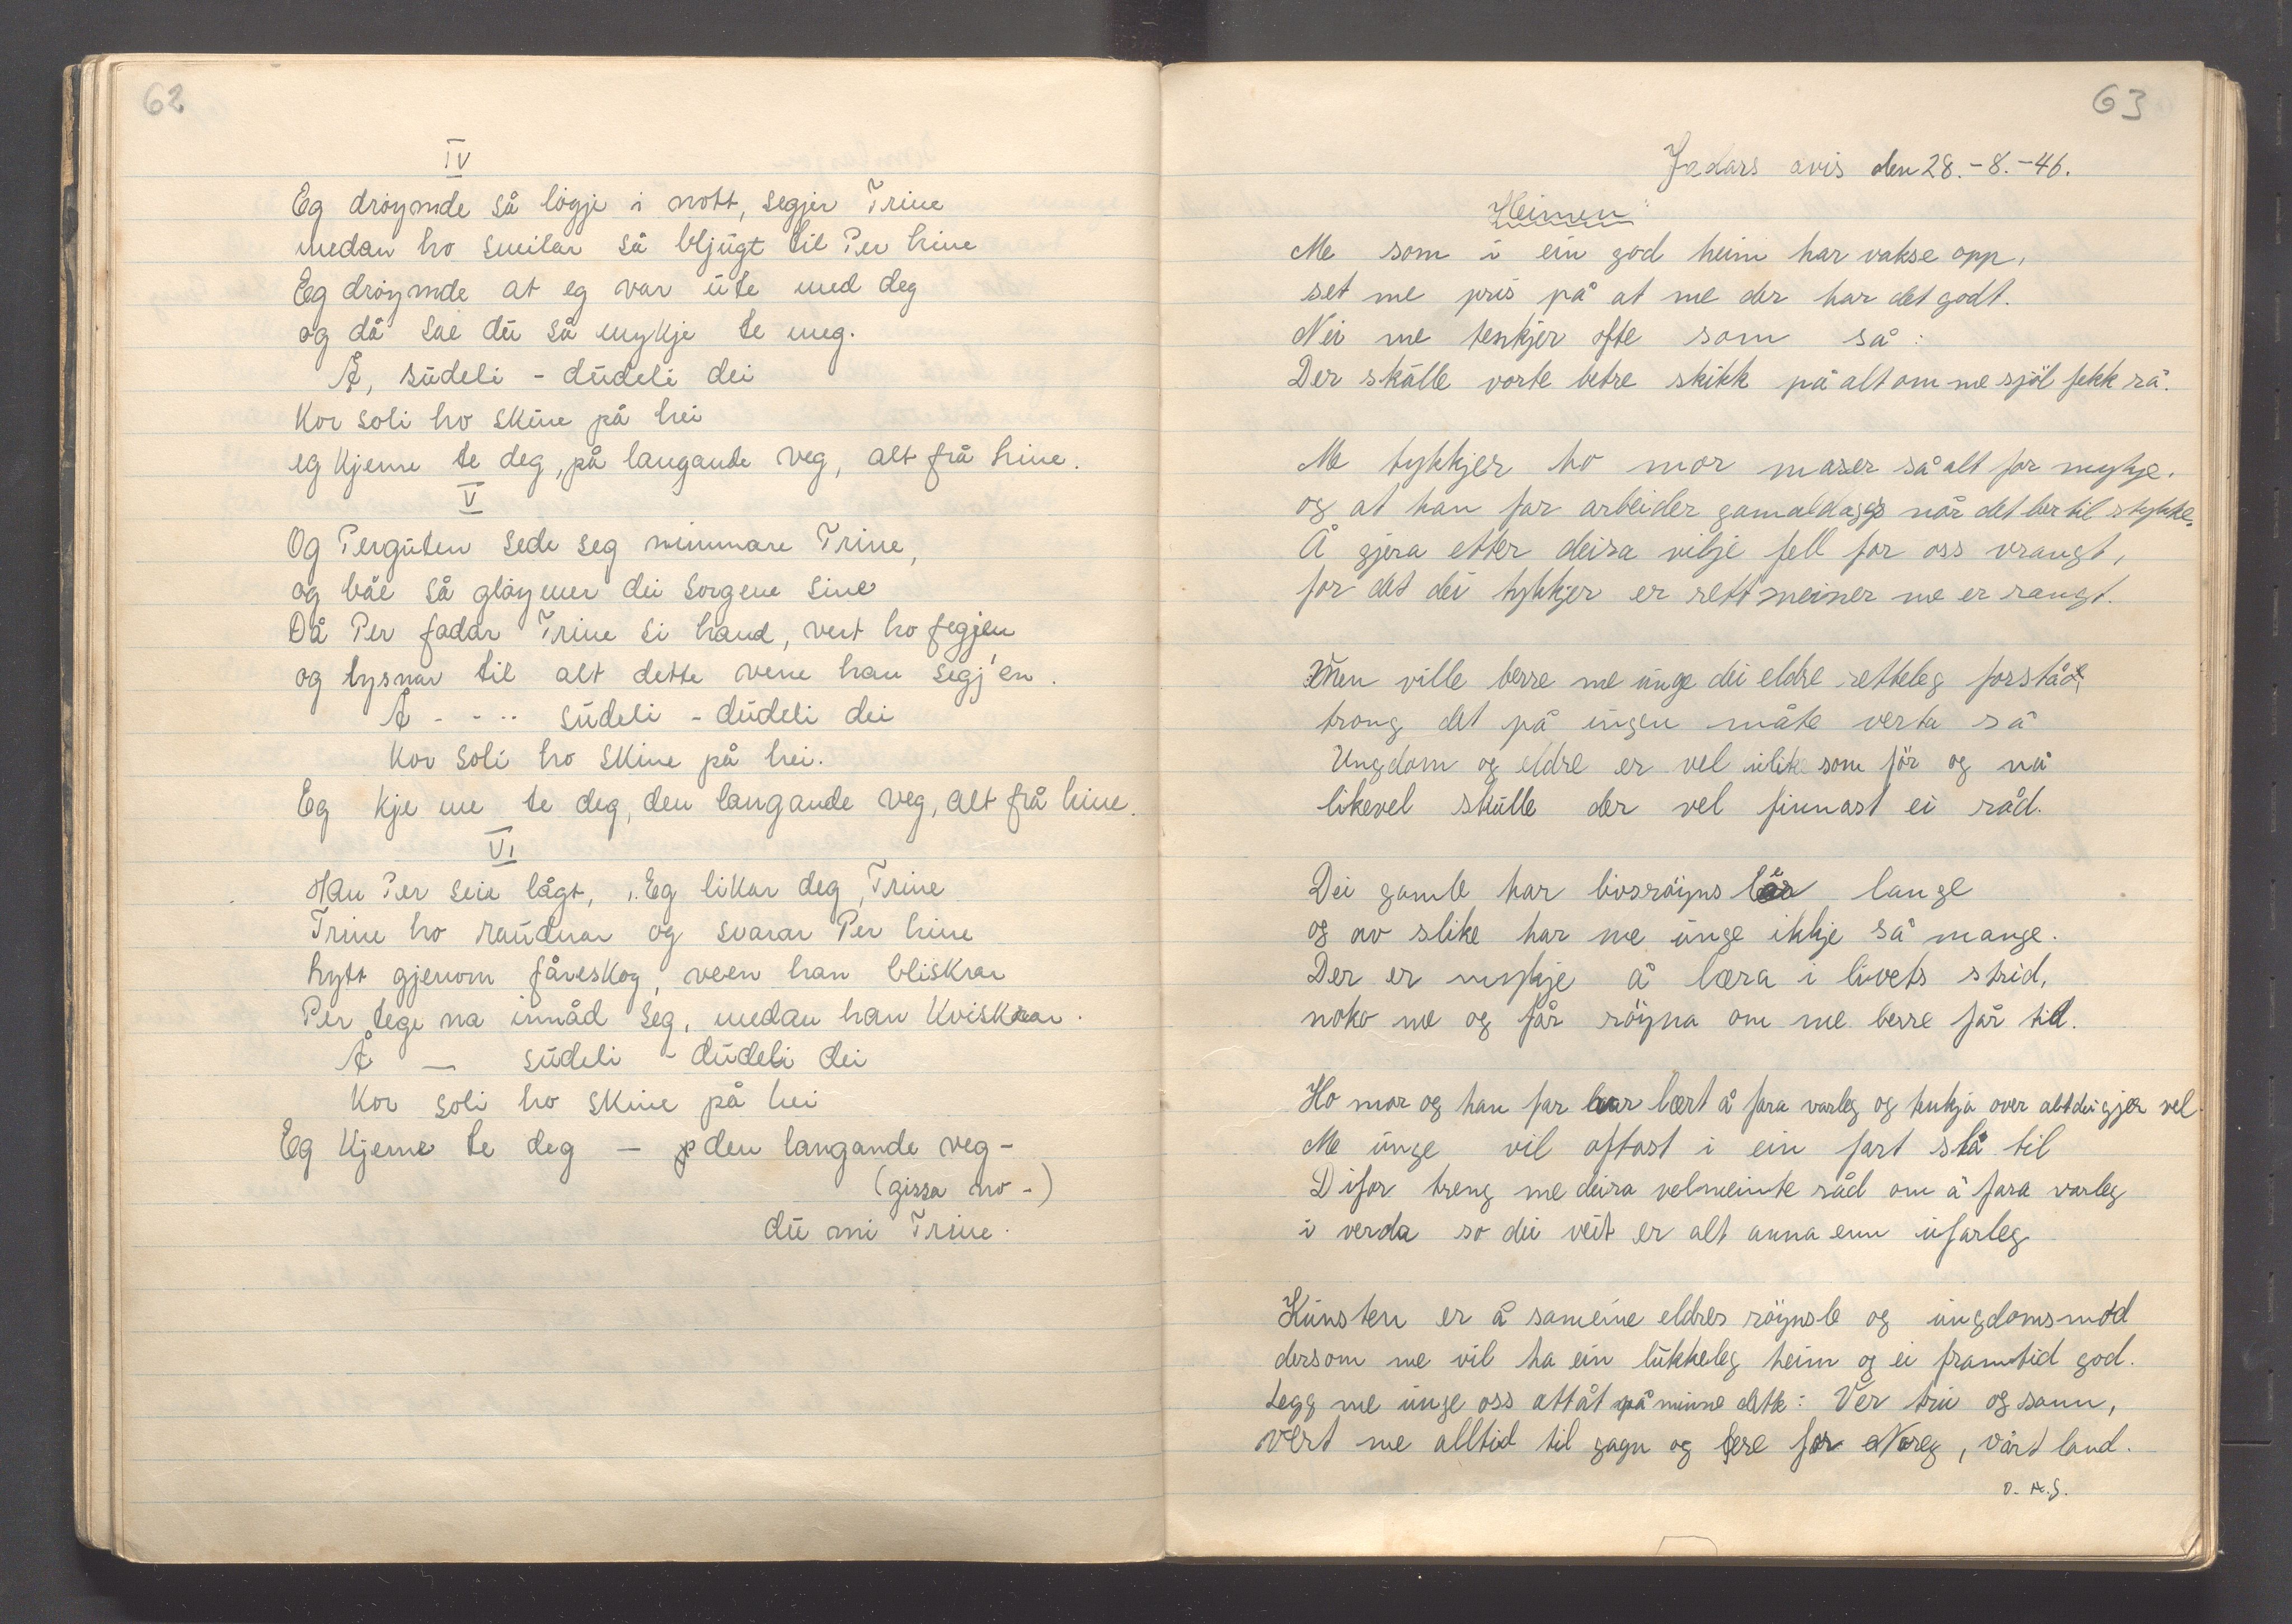 62
IV
Eg dröymde så lögje i nott, segjer Trine
medan ho smilar så bljugt til Per hine
Eg dröymde at eg var ute med deg
og då sae du så mykje te meg.
Å, sudeli - dudeli dei
Kor soli ho skine på hei
eg kjeme te deg, på langande veg, alt frå hine.
V
Og Perguten sede seg nimmare Trine,
og båe så glöymer dei sorgene sine
Då Per fadar Trine si hand, vert ho fegjen
og lysnar til alt dette vene han segj'en.
Å - - .. sudeli - dudeli dei
Kor soli ho skine på hei.
Eg kje me te deg, den langande veg, alt frå hine.
VI
Han Per seie lågt, „Eg likar deg, Trine
Trine ho raudnar og svarar Per hine
hytt gjenom fåreskog, veen han bliskrar
Per tege na innåd seg, medan han kviskrar.
Å — sudeli - dudeli dei
Kor soli ho skine på hei
Eg kjeme te deg — den langande veg -
(gissa no -)
du mi Trine.
63
Jadars avis den 28.-8.-46.
Heimen"
Me som i ein god heim har vakse opp,
set me pris på at me der har det godt.
Nei me tenkjer ofte som så:
Der skulle vorte betre skikk på alt om me sjöl fekk rå.
Me tykkjer ho mor maser så alt for mykje.
og at han far arbeider gamaldags når det ber til stykke.
Å gjera etter deira vilje fell for oss vrangt,
for det dei tykkjer er rett meiner me er rangt.
Men ville berre me unge dei eldre retteleg forstå,
trong det på ingen måte verta så
Ungdom og eldre er vel ulike som för og nå
likevel skulle der vel finnast ei råd.
Dei gamle har livsröyns lange
og av slike har me unge ikkje så mange.
Der er mykje å læra i livets strid,
noko me og får röyna om me berre får tid.
Ho mor og han far har lært å fara varleg og tenkja over alt dei gjer vel.
Me unge vil oftast i ein fart slå til
Difor treng me deira velmeinte råd om å fara varleg
i verda so dei veit er alt anna enn ufarleg
Kunsten er å sameine eldres röynsle og ungdomsmod
dersom me vil ha ein lukkeleg heim og ei framtid god.
Legg me unge oss attåt på minne dette: Ver tru og sann,
vert me alltid til gagn og ære for Noreg, vårt land.
O. A. S.